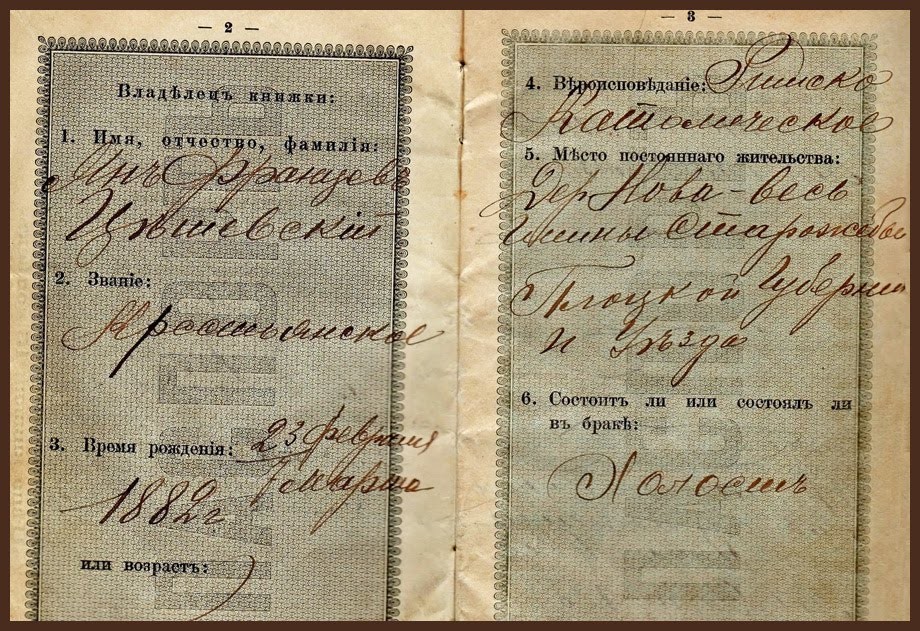 — 2 —
Владѣлецъ книжки:
1. Имя, отчество, фамилія:
Янъ Францевъ
Цѣшевскій
2. Званіе:
Крестьянское
3. Время рожденія: 23 Февраля
7 Марта
1882 г
или возрастъ:
— 3 —
4. Вѣроисповѣданіе: Римско
Католическое
5. Мѣсто постояннаго жительства:
Дер Нова-весь
Гмины Старожебы
Плоцкой Губерніи
и Уѣзда
6. Состоитъ ли или состоялъ ли
въ бракѣ:
Холостъ